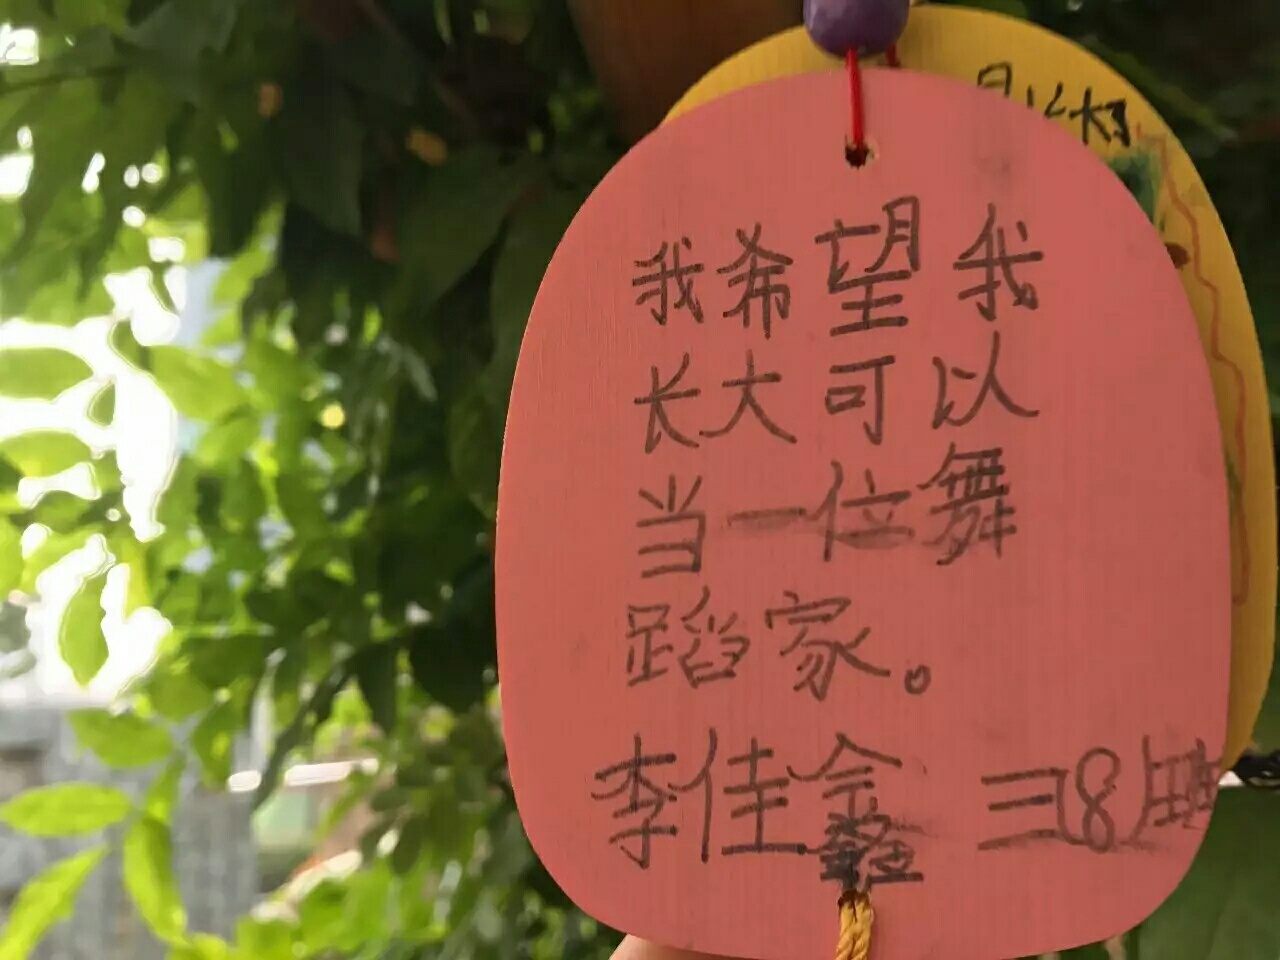 我希望我
长大可以
当一位舞
蹈家。
李佳鑫 三(8)班